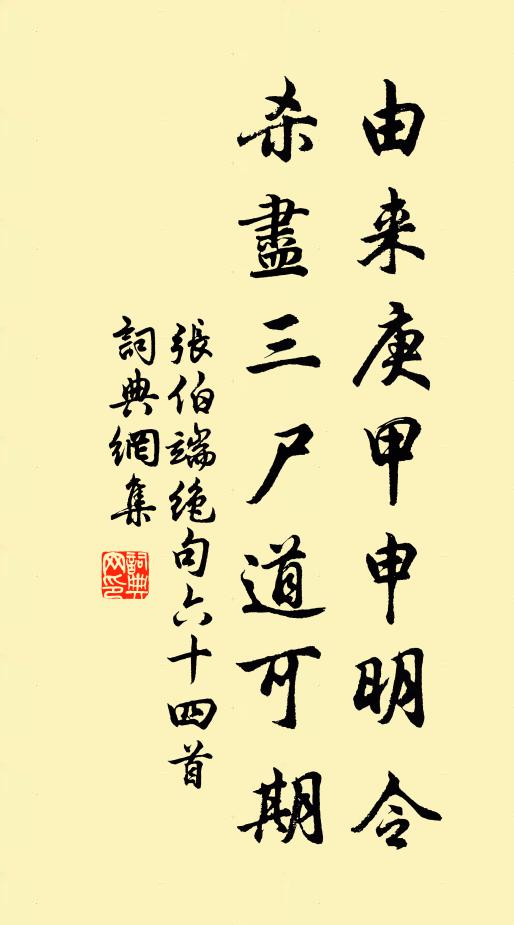 由来庚甲申明令
杀盡三尸道可期
張伯端绝句六十四首
詞典網集
詞典网印